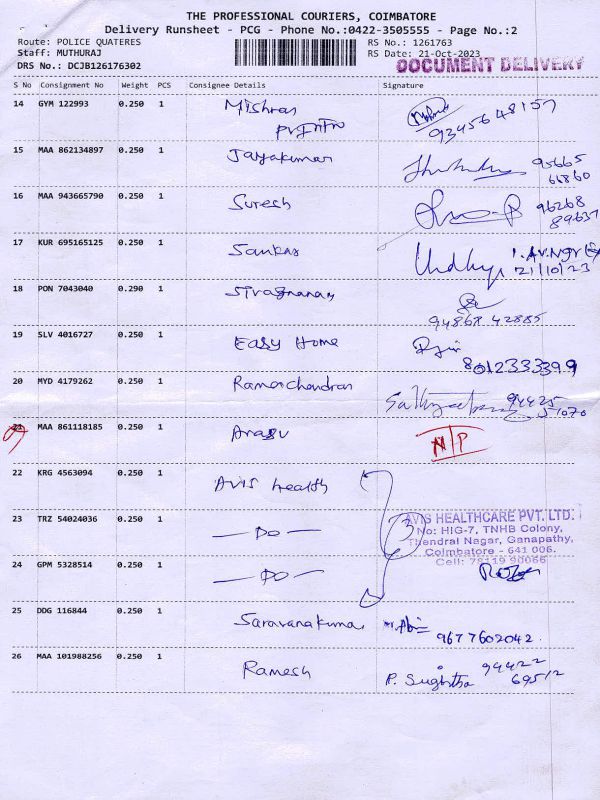 THE PROFESSIONAL COURIERS, COIMBATORE
Delivery Runsheet - PCG - Phone No.:0422-3505555 - Page No.:2
Route: POLICE QUATERES RS No.: 1261763
Staff: MUTHURAJ RS Date: 21-Oct-2023
DRS No.: DCJB126176302 DOCUMENT DELIVERY
S No Consignment No Weight PCS Consignee Details Signature
14 GYM 122993 0.250 1 Mishras
9345648157
15 MAA 862134897 0.250 1 Jayakumar 95665
66860
16 MAA 943665790 0.250 1 Suresh 96268
89637
17 KUR 695165125 0.250 1 Sankar
21/10/23
18 PON 7043040 0.290 1 Sivagnanam
94868 42885
19 SLV 4016727 0.250 1 Easy Home
8012333399
20 MYD 4179262 0.250 1 Ramachandran 94425
51070
21 MAA 861118185 0.250 1 Arasu N/P
22 KRG 4563094 0.250 1 Avis health
23 TRZ 54024036 0.250 1 — DO — 3 AVIS HEALTHCARE PVT. LTD.
No: HIG-7, TNHB Colony,
Thendral Nagar, Ganapathy,
Coimbatore - 641 006.
Cell: 78119 90066
24 GPM 5328514 0.250 1 — DO —
25 DDG 116844 0.250 1 Saravanakumar
9677602042
26 MAA 101988256 0.250 1 Ramesh P. Sugbitha 94422
69512